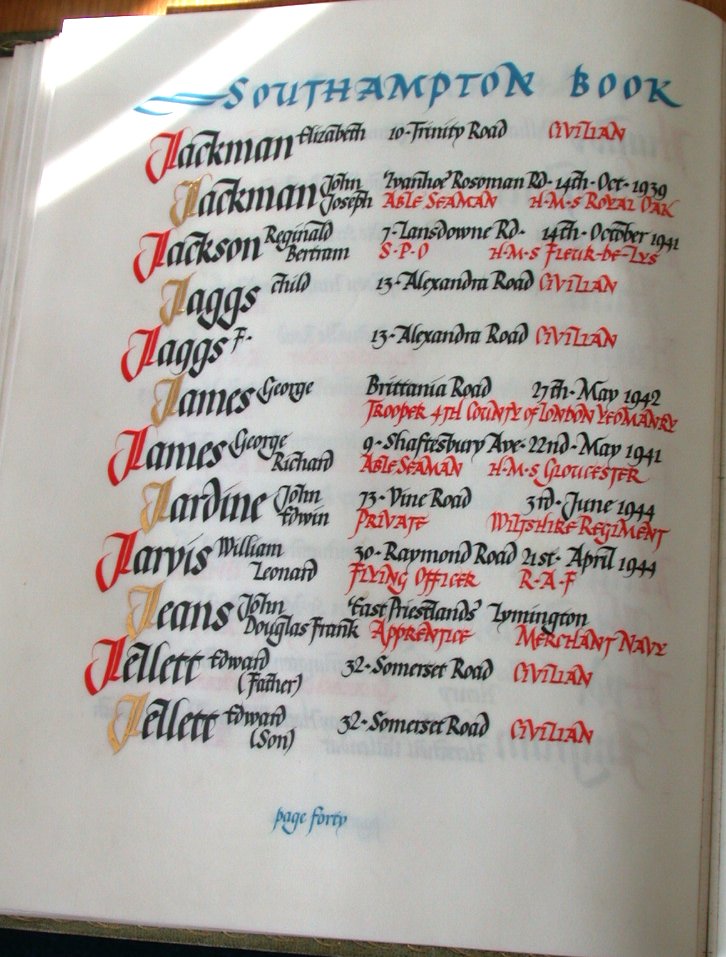 SOUTHAMPTON BOOK
Jackman Elizabeth 10·Trinity Road CIVILIAN
Jackman John 'Ivanhoe' Rosoman Rd· 14th·Oct·1939
Joseph ABLE SEAMAN H·M·S ROYAL OAK
Jackson Reginald 7·Lansdowne Rd· 14th·October 1941
Bertram S·P·O H·M·S FLEUR-DE-LYS
Jaggs child 13·Alexandra Road CIVILIAN
Jaggs F· 13·Alexandra Road CIVILIAN
James George Brittania Road 27th·May 1942
TROOPER 4TH COUNTY OF LONDON YEOMANRY
James George 9·Shaftesbury Ave·22nd·May 1941
Richard ABLE SEAMAN H·M·S GLOUCESTER
Jardine John 73·Vine Road 3rd·June 1944
Edwin PRIVATE WILTSHIRE REGIMENT
Jarvis William 30·Raymond Road 21st·April 1944
Leonard FLYING OFFICER R·A·F
Jeans John 'East Priestlands' Lymington
Douglas Frank APPRENTICE MERCHANT NAVY
Jellett Edward 32·Somerset Road CIVILIAN
(Father)
Jellett Edward 32·Somerset Road CIVILIAN
(Son)
page forty